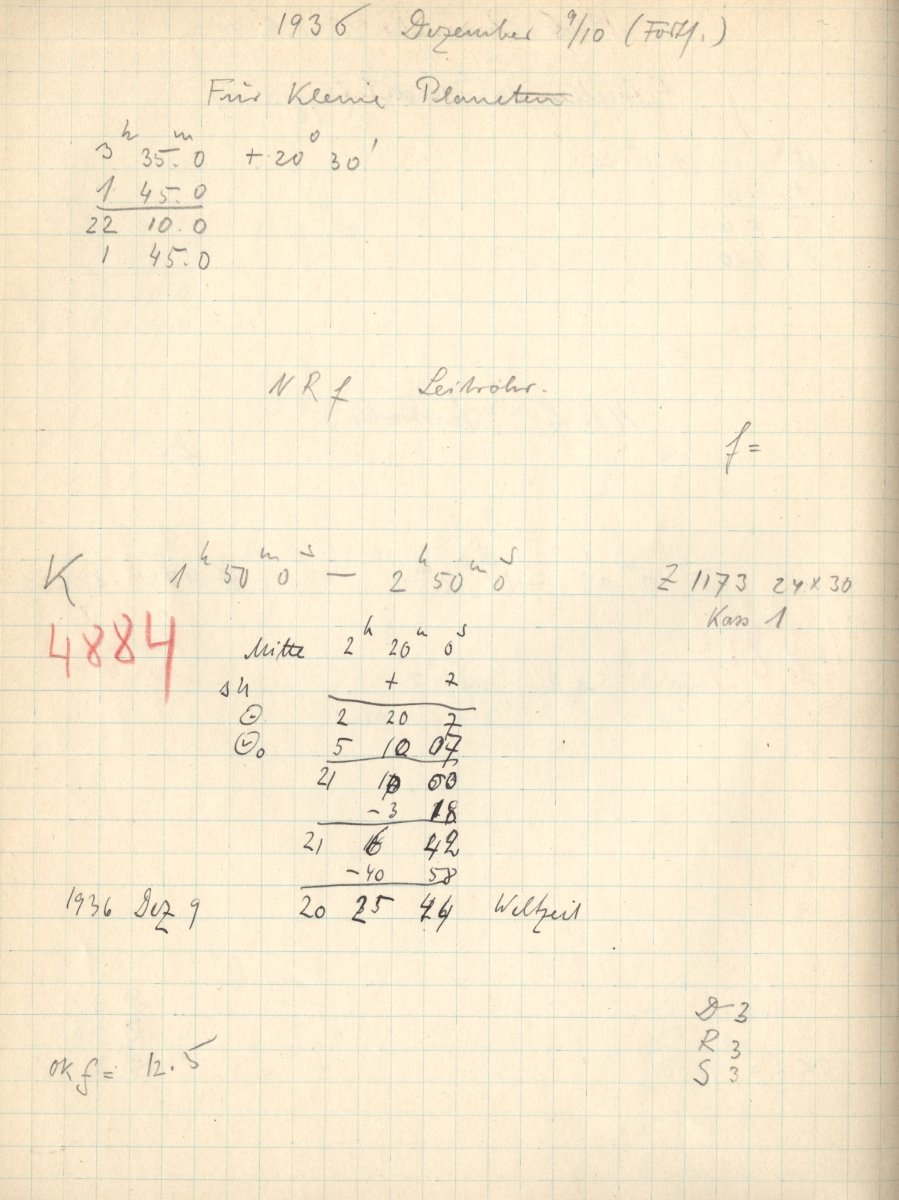 1936 Dezember 9/10 (Forts.)
Für Kleine Planeten
3h 35m.0 + 20° 30'
1 45.0
22 10.0
1 45.0
NRf Leitrohr.
f =
K 1h 50m 0s — 2h 50m 0s Z 1173 24 x 30
Kass 1
4884
Mitte 2h 20m 0s
su + 7
⊙ 2 20 7
5 10 07
21 10 00
-3 18
21 6 42
-40 58
1936 Dez 9 20 25 44 Weltzeit
D 3
R 3
S 3
ok f = 12.5